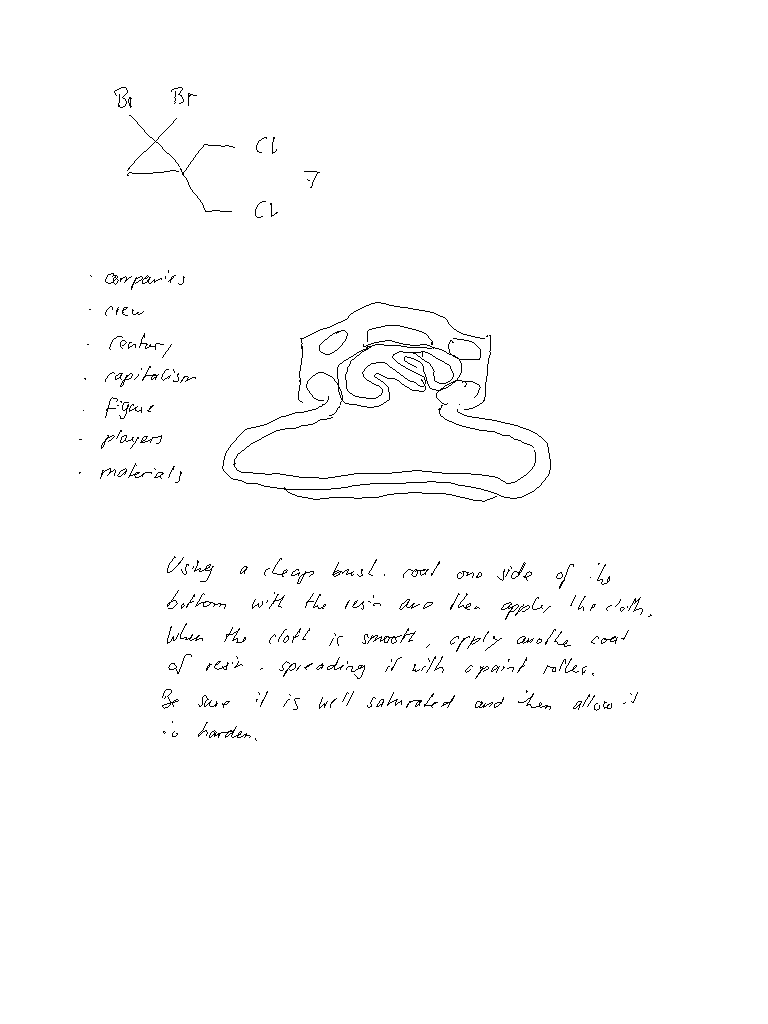 Br Br
Cl
7
Cl
· companies
· crew
· century
· capitalism
· figure
· players
· materials
Using a cheap brush. coat one side of the
bottom with the resin and then apply the cloth.
When the cloth is smooth, apply another coat
of resin. spreading it with a paint roller.
Be sure it is well saturated and then allow it
to harden.